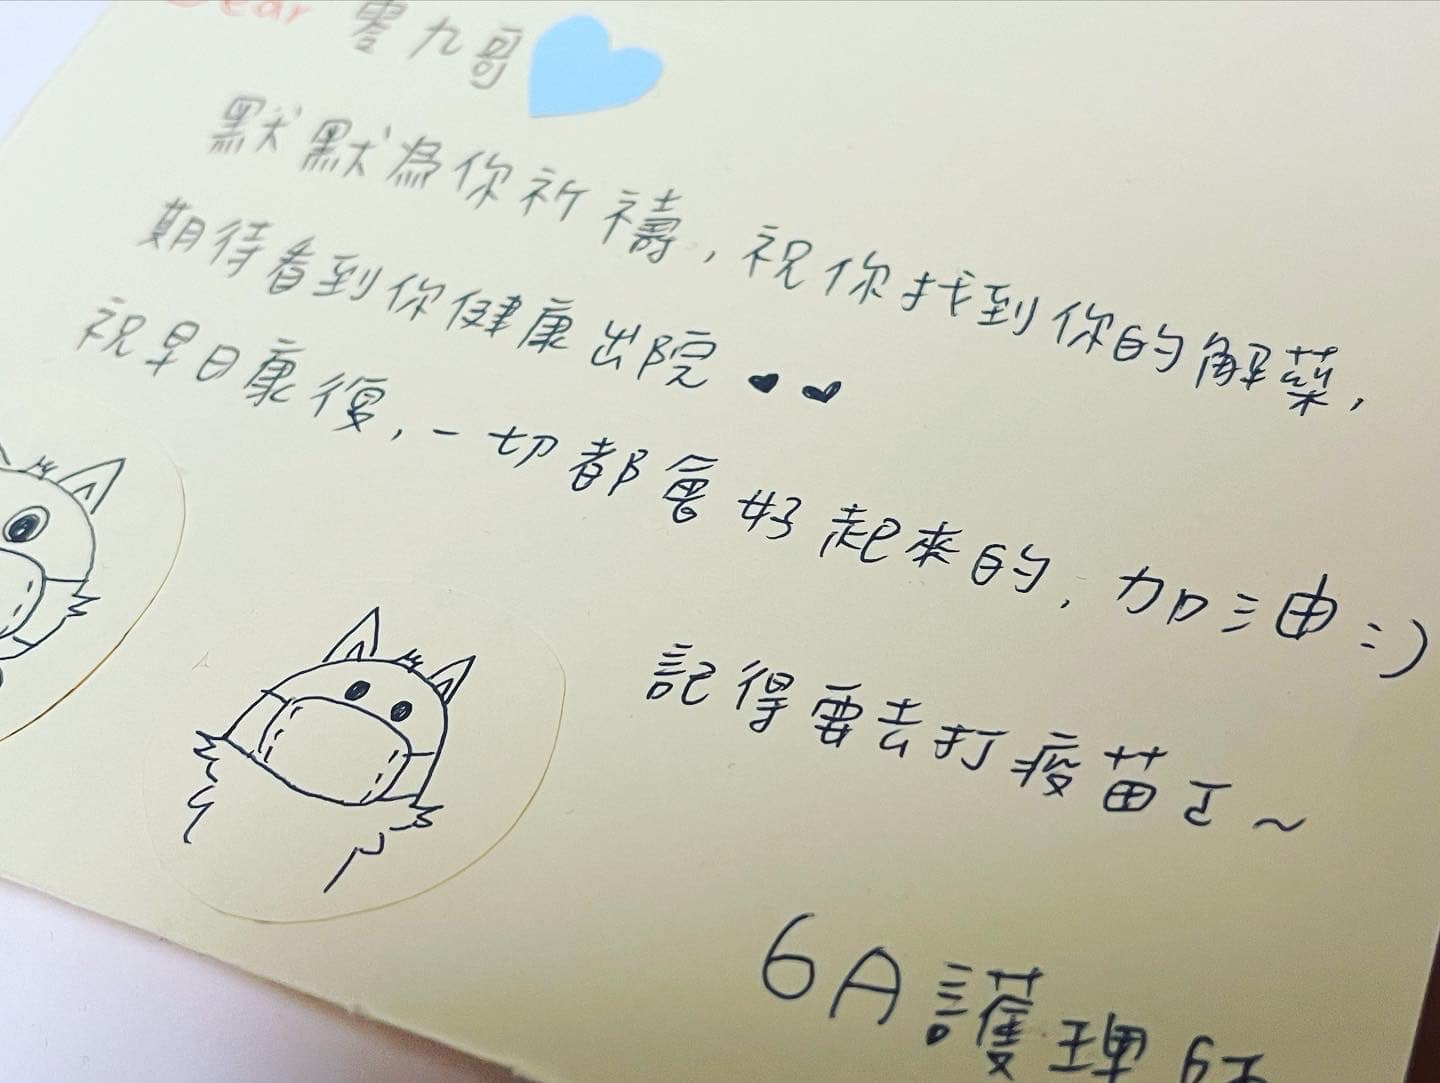 Dear 零九哥
默默為你祈禱,祝你找到你的解藥,
期待看到你健康出院
祝早日康復,一切都會好起來的,加油:)
記得要去打疫苗了~
6A護理師